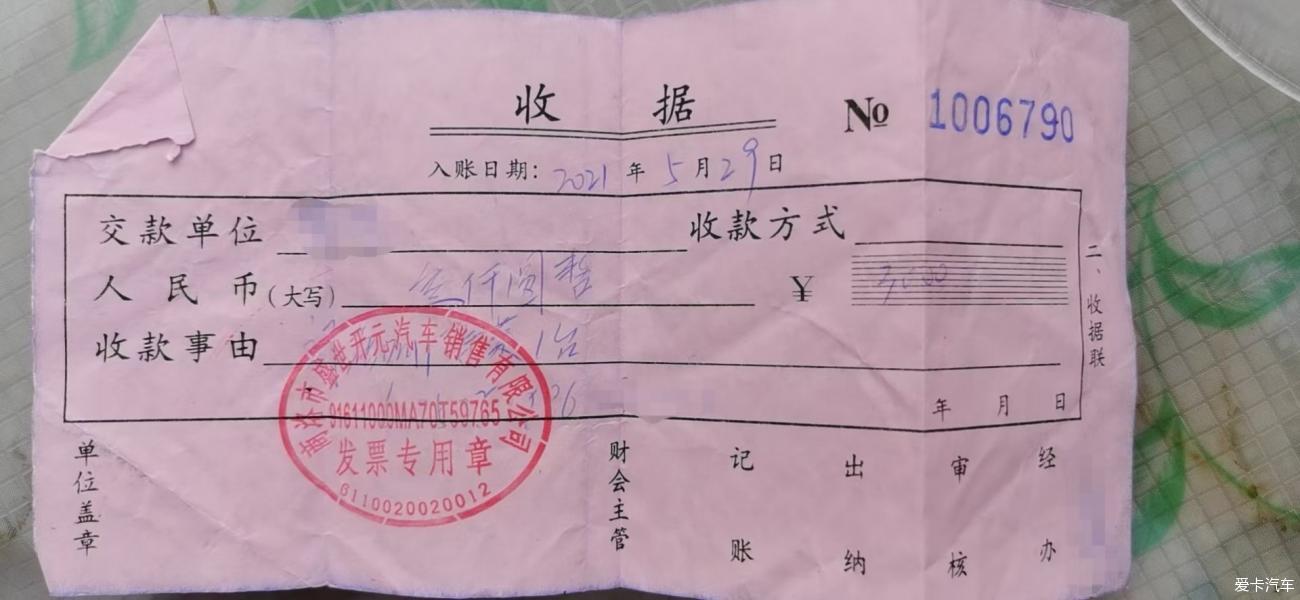 收据 № 1006790
入账日期: 2021 年 5 月 29 日
交款单位 收款方式
人民币(大写) 叁仟圆整 ¥ 3000
收款事由
1台
年 月 日
二、收据联
商洛市盛世开元汽车销售有限公司
91611000MA70T59765
发票专用章
6110020020012
单位盖章 财会主管 记账 出纳 审核 经办
爱卡汽车